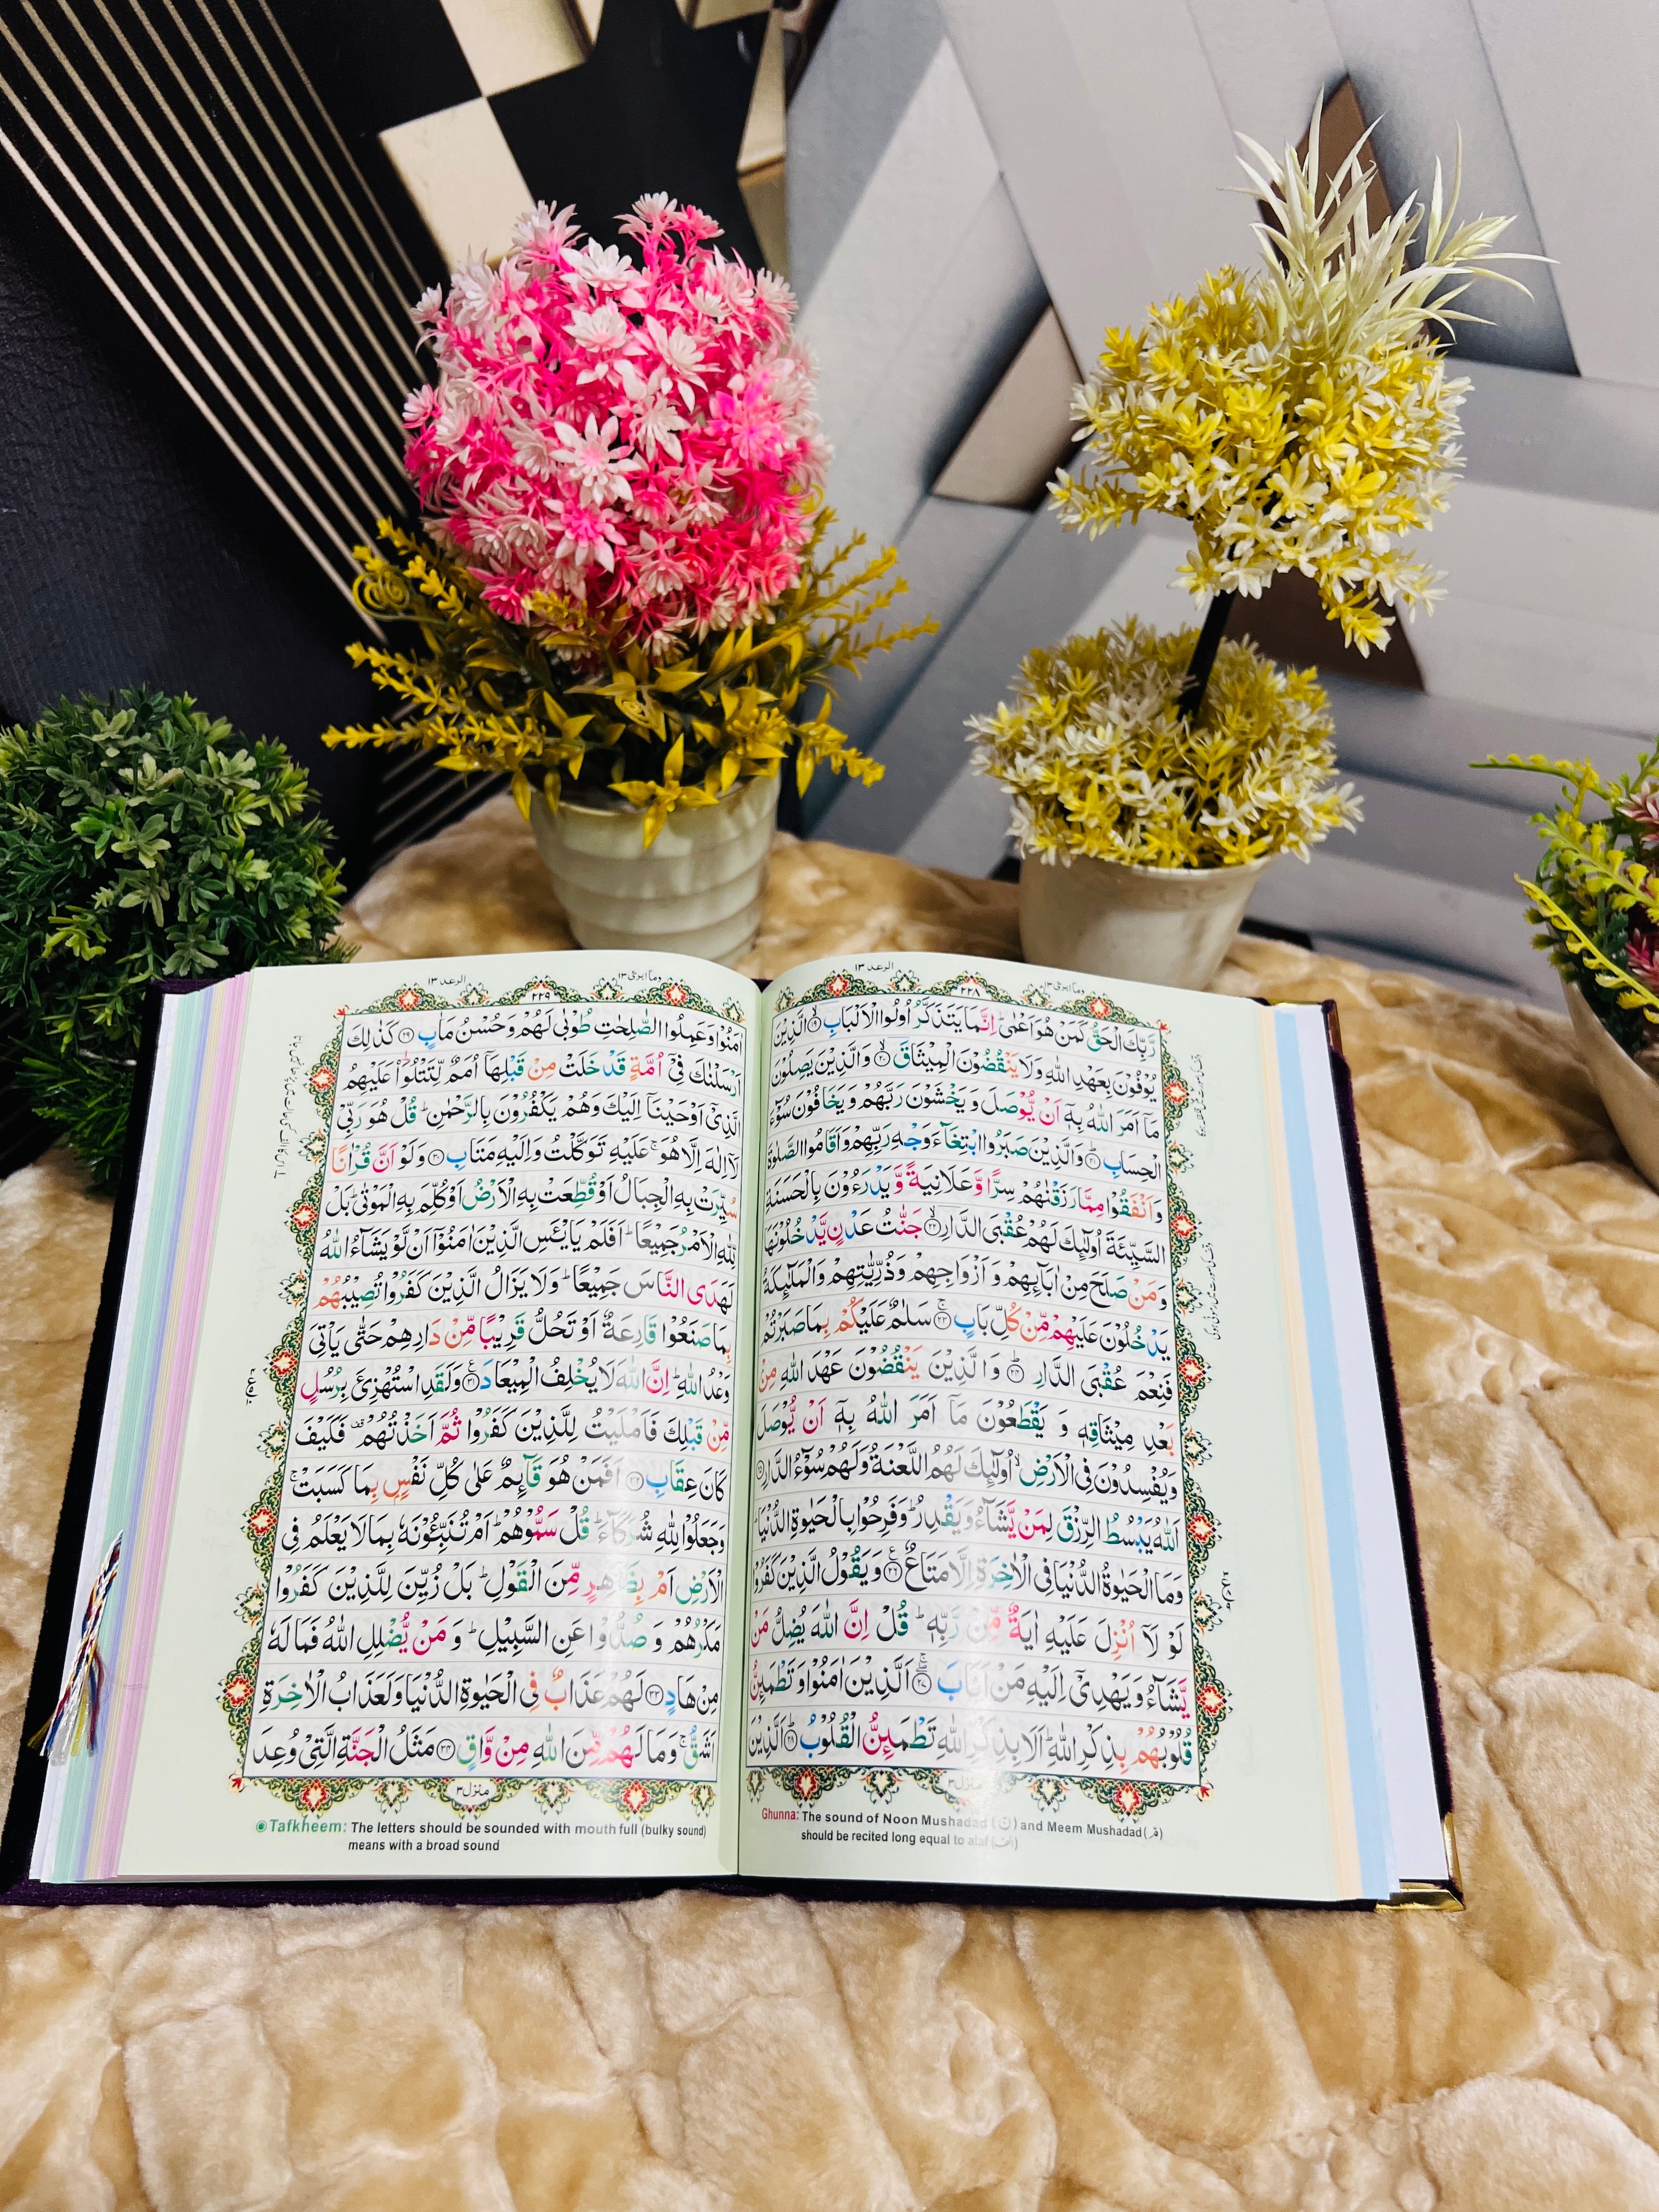 الرعد ١٣
٢٢٨
وما ابرئ ١٣
رَبِّكَ الْحَقُّ كَمَنْ هُوَ اَعْمٰىؕ اِنَّمَا يَتَذَكَّرُ اُولُوا الْاَلْبَابِ ۙ‏﴿۱۹﴾ الَّذِيْنَ
يُوْفُوْنَ بِعَهْدِ اللّٰهِ وَلَا يَنْقُضُوْنَ الْمِيْثَاقَ ۙ‏﴿۲۰﴾ وَالَّذِيْنَ يَصِلُوْنَ
مَاۤ اَمَرَ اللّٰهُ بِهٖۤ اَنْ يُّوْصَلَ وَيَخْشَوْنَ رَبَّهُمْ وَيَخَافُوْنَ سُوْٓءَ
الْحِسَابِؕ‏﴿۲۱﴾ وَالَّذِيْنَ صَبَرُوا ابْتِغَآءَ وَجْهِ رَبِّهِمْ وَاَقَامُوا الصَّلٰوةَ
وَاَنْفَقُوْا مِمَّا رَزَقْنٰهُمْ سِرًّا وَّعَلَانِيَةً وَّيَدْرَءُوْنَ بِالْحَسَنَةِ
السَّيِّئَةَ اُولٰٓئِكَ لَهُمْ عُقْبَى الدَّارِۙ‏﴿۲۲﴾ جَنّٰتُ عَدْنٍ يَّدْخُلُوْنَهَا
وَمَنْ صَلَحَ مِنْ اٰبَآئِهِمْ وَاَزْوَاجِهِمْ وَذُرِّيّٰتِهِمْ وَالْمَلٰٓئِكَةُ
يَدْخُلُوْنَ عَلَيْهِمْ مِّنْ كُلِّ بَابٍۚ‏﴿۲۳﴾ سَلٰمٌ عَلَيْكُمْ بِمَا صَبَرْتُمْ
فَنِعْمَ عُقْبَى الدَّارِؕ‏﴿۲۴﴾ وَالَّذِيْنَ يَنْقُضُوْنَ عَهْدَ اللّٰهِ مِنْۢ
بَعْدِ مِيْثَاقِهٖ وَيَقْطَعُوْنَ مَاۤ اَمَرَ اللّٰهُ بِهٖۤ اَنْ يُّوْصَلَ
وَيُفْسِدُوْنَ فِى الْاَرْضِۙ اُولٰٓئِكَ لَهُمُ اللَّعْنَةُ وَلَهُمْ سُوْٓءُ الدَّارِ‏﴿۲۵﴾
اَللّٰهُ يَبْسُطُ الرِّزْقَ لِمَنْ يَّشَآءُ وَيَقْدِرُؕ وَفَرِحُوْا بِالْحَيٰوةِ الدُّنْيَاؕ
وَمَا الْحَيٰوةُ الدُّنْيَا فِى الْاٰخِرَةِ اِلَّا مَتَاعٌ‏﴿۲۶﴾ وَيَقُوْلُ الَّذِيْنَ كَفَرُوْا
لَوْلَاۤ اُنْزِلَ عَلَيْهِ اٰيَةٌ مِّنْ رَّبِّهٖؕ قُلْ اِنَّ اللّٰهَ يُضِلُّ مَنْ
يَّشَآءُ وَيَهْدِىْۤ اِلَيْهِ مَنْ اَنَابَ‏ۖ‏ۚ‏﴿۲۷﴾ اَلَّذِيْنَ اٰمَنُوْا وَتَطْمَئِنُّ
قُلُوْبُهُمْ بِذِكْرِ اللّٰهِؕ اَلَا بِذِكْرِ اللّٰهِ تَطْمَئِنُّ الْقُلُوْبُؕ‏﴿۲۸﴾ اَلَّذِيْنَ
منزل ٣
Ghunna: The sound of Noon Mushadad (نّ) and Meem Mushadad (مّ)
should be recited long equal to alaf (الف)
الرعد ١٣
٢٢٩
وما ابرئ ١٣
اٰمَنُوْا وَعَمِلُوا الصّٰلِحٰتِ طُوْبٰى لَهُمْ وَحُسْنُ مَاٰبٍ‏﴿۲۹﴾ كَذٰلِكَ
اَرْسَلْنٰكَ فِىْۤ اُمَّةٍ قَدْ خَلَتْ مِنْ قَبْلِهَاۤ اُمَمٌ لِّتَتْلُوَا۟ عَلَيْهِمُ
الَّذِىْۤ اَوْحَيْنَاۤ اِلَيْكَ وَهُمْ يَكْفُرُوْنَ بِالرَّحْمٰنِؕ قُلْ هُوَ رَبِّىْ
لَاۤ اِلٰهَ اِلَّا هُوَۚ عَلَيْهِ تَوَكَّلْتُ وَاِلَيْهِ مَتَابِ‏﴿۳۰﴾ وَلَوْ اَنَّ قُرْاٰنًا
سُيِّرَتْ بِهِ الْجِبَالُ اَوْ قُطِّعَتْ بِهِ الْاَرْضُ اَوْ كُلِّمَ بِهِ الْمَوْتٰىؕ بَلْ
لِّلّٰهِ الْاَمْرُ جَمِيْعًاؕ اَفَلَمْ يَايْـَٔسِ الَّذِيْنَ اٰمَنُوْۤا اَنْ لَّوْ يَشَآءُ اللّٰهُ
لَهَدَى النَّاسَ جَمِيْعًاؕ وَلَا يَزَالُ الَّذِيْنَ كَفَرُوْا تُصِيْبُهُمْ
بِمَا صَنَعُوْا قَارِعَةٌ اَوْ تَحُلُّ قَرِيْبًا مِّنْ دَارِهِمْ حَتّٰى يَاْتِىَ
وَعْدُ اللّٰهِؕ اِنَّ اللّٰهَ لَا يُخْلِفُ الْمِيْعَادَ‏﴿۳۱﴾ وَلَقَدِ اسْتُهْزِئَ بِرُسُلٍ
مِّنْ قَبْلِكَ فَاَمْلَيْتُ لِلَّذِيْنَ كَفَرُوْا ثُمَّ اَخَذْتُهُمْ فَكَيْفَ
كَانَ عِقَابِ‏﴿۳۲﴾ اَفَمَنْ هُوَ قَآئِمٌ عَلٰى كُلِّ نَفْسٍۢ بِمَا كَسَبَتْۚ
وَجَعَلُوْا لِلّٰهِ شُرَكَآءَؕ قُلْ سَمُّوْهُمْؕ اَمْ تُنَبِّـُٔوْنَهٗ بِمَا لَا يَعْلَمُ فِى
الْاَرْضِ اَمْ بِظَاهِرٍ مِّنَ الْقَوْلِؕ بَلْ زُيِّنَ لِلَّذِيْنَ كَفَرُوْا
مَكْرُهُمْ وَصُدُّوْا عَنِ السَّبِيْلِؕ وَمَنْ يُّضْلِلِ اللّٰهُ فَمَا لَهٗ
مِنْ هَادٍ‏﴿۳۳﴾ لَهُمْ عَذَابٌ فِى الْحَيٰوةِ الدُّنْيَا وَلَعَذَابُ الْاٰخِرَةِ
اَشَقُّۚ وَمَا لَهُمْ مِّنَ اللّٰهِ مِنْ وَّاقٍ‏﴿۳۴﴾ مَثَلُ الْجَنَّةِ الَّتِىْ وُعِدَ
منزل ٣
Tafkheem: The letters should be sounded with mouth full (bulky sound)
means with a broad sound